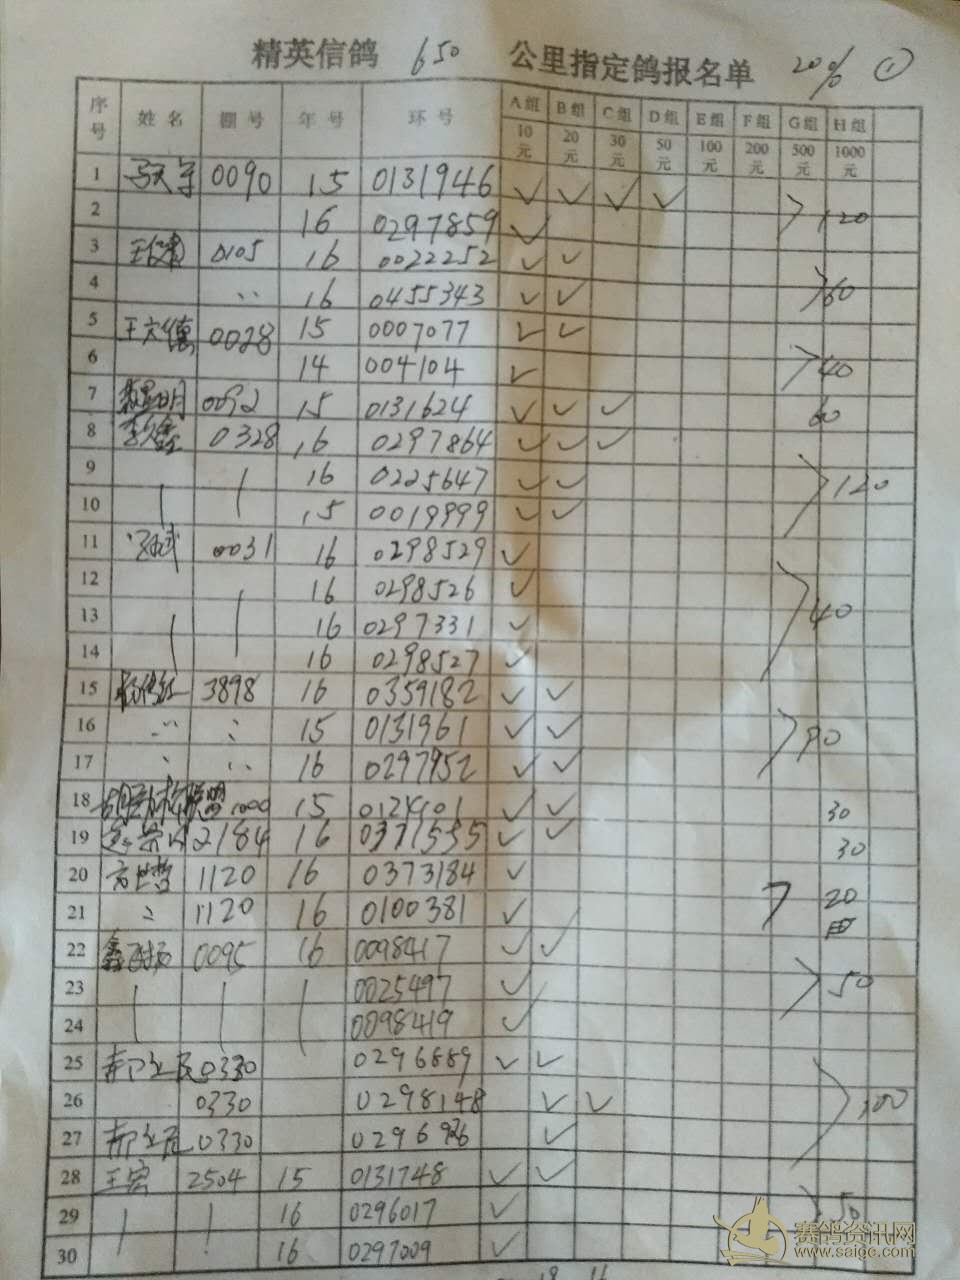 精英信鸽 650 公里指定鸽报名单 20% ①
序号 姓名 棚号 年号 环号 A组 B组 C组 D组 E组 F组 G组 H组
10元 20元 30元 50元 100元 200元 500元 1000元
1 0090 15 0131946 ✓ ✓ ✓ ✓
2 16 0297859 ✓ 120
3 0105 16 0022252 ✓ ✓
4 16 0455343 ✓ ✓ 60
5 0028 15 0007077 ✓ ✓
6 14 004104 ✓ 40
7 0092 15 0131624 ✓ ✓ ✓ 60
8 0328 16 0297864 ✓ ✓ ✓
9 16 0225647 ✓ ✓ 120
10 15 0019999 ✓ ✓
11 0031 16 0298529 ✓
12 16 0298526 ✓
13 16 0297331 ✓ 40
14 16 0298527 ✓
15 3898 16 0359182 ✓ ✓
16 15 0131961 ✓ ✓ 90
17 16 0297952 ✓ ✓
18 1000 15 0124101 ✓ ✓ 30
19 2184 16 0371555 ✓ ✓ 30
20 方世哲 1120 16 0373184 ✓ 20
21 1120 16 0100381 ✓
22 0095 16 0098417 ✓ ✓
23 0025497 ✓ 50
24 0098419 ✓
25 0330 0296889 ✓ ✓
26 0330 0298148 ✓ ✓ 100
27 0330 0296936 ✓
28 王宏 2504 15 0131748 ✓ ✓
29 16 0296017 ✓ 50
30 16 0297009 ✓
赛鸽资讯网
www.saige.com
18 16